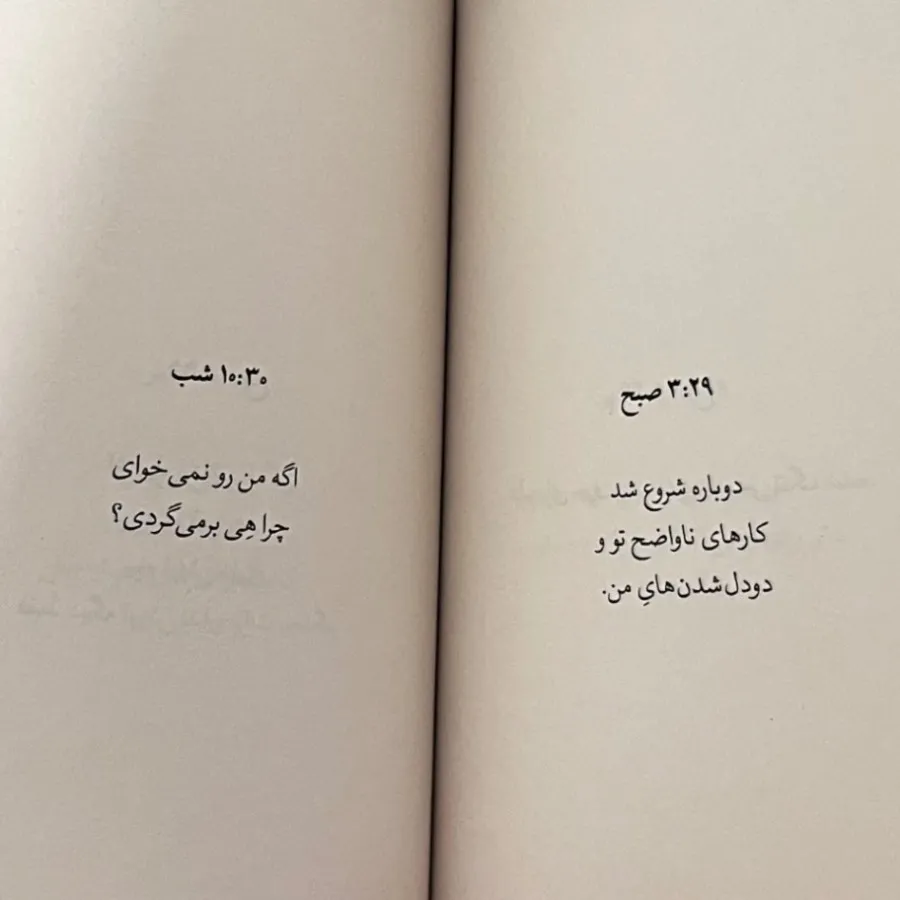 ۳:۲۹ صبح
دوباره شروع شد
کارهای ناواضح تو و
دودل‌شدن‌هایِ من.
۱۰:۳۰ شب
اگه من رو نمی‌خوای
چرا هِی برمی‌گردی؟